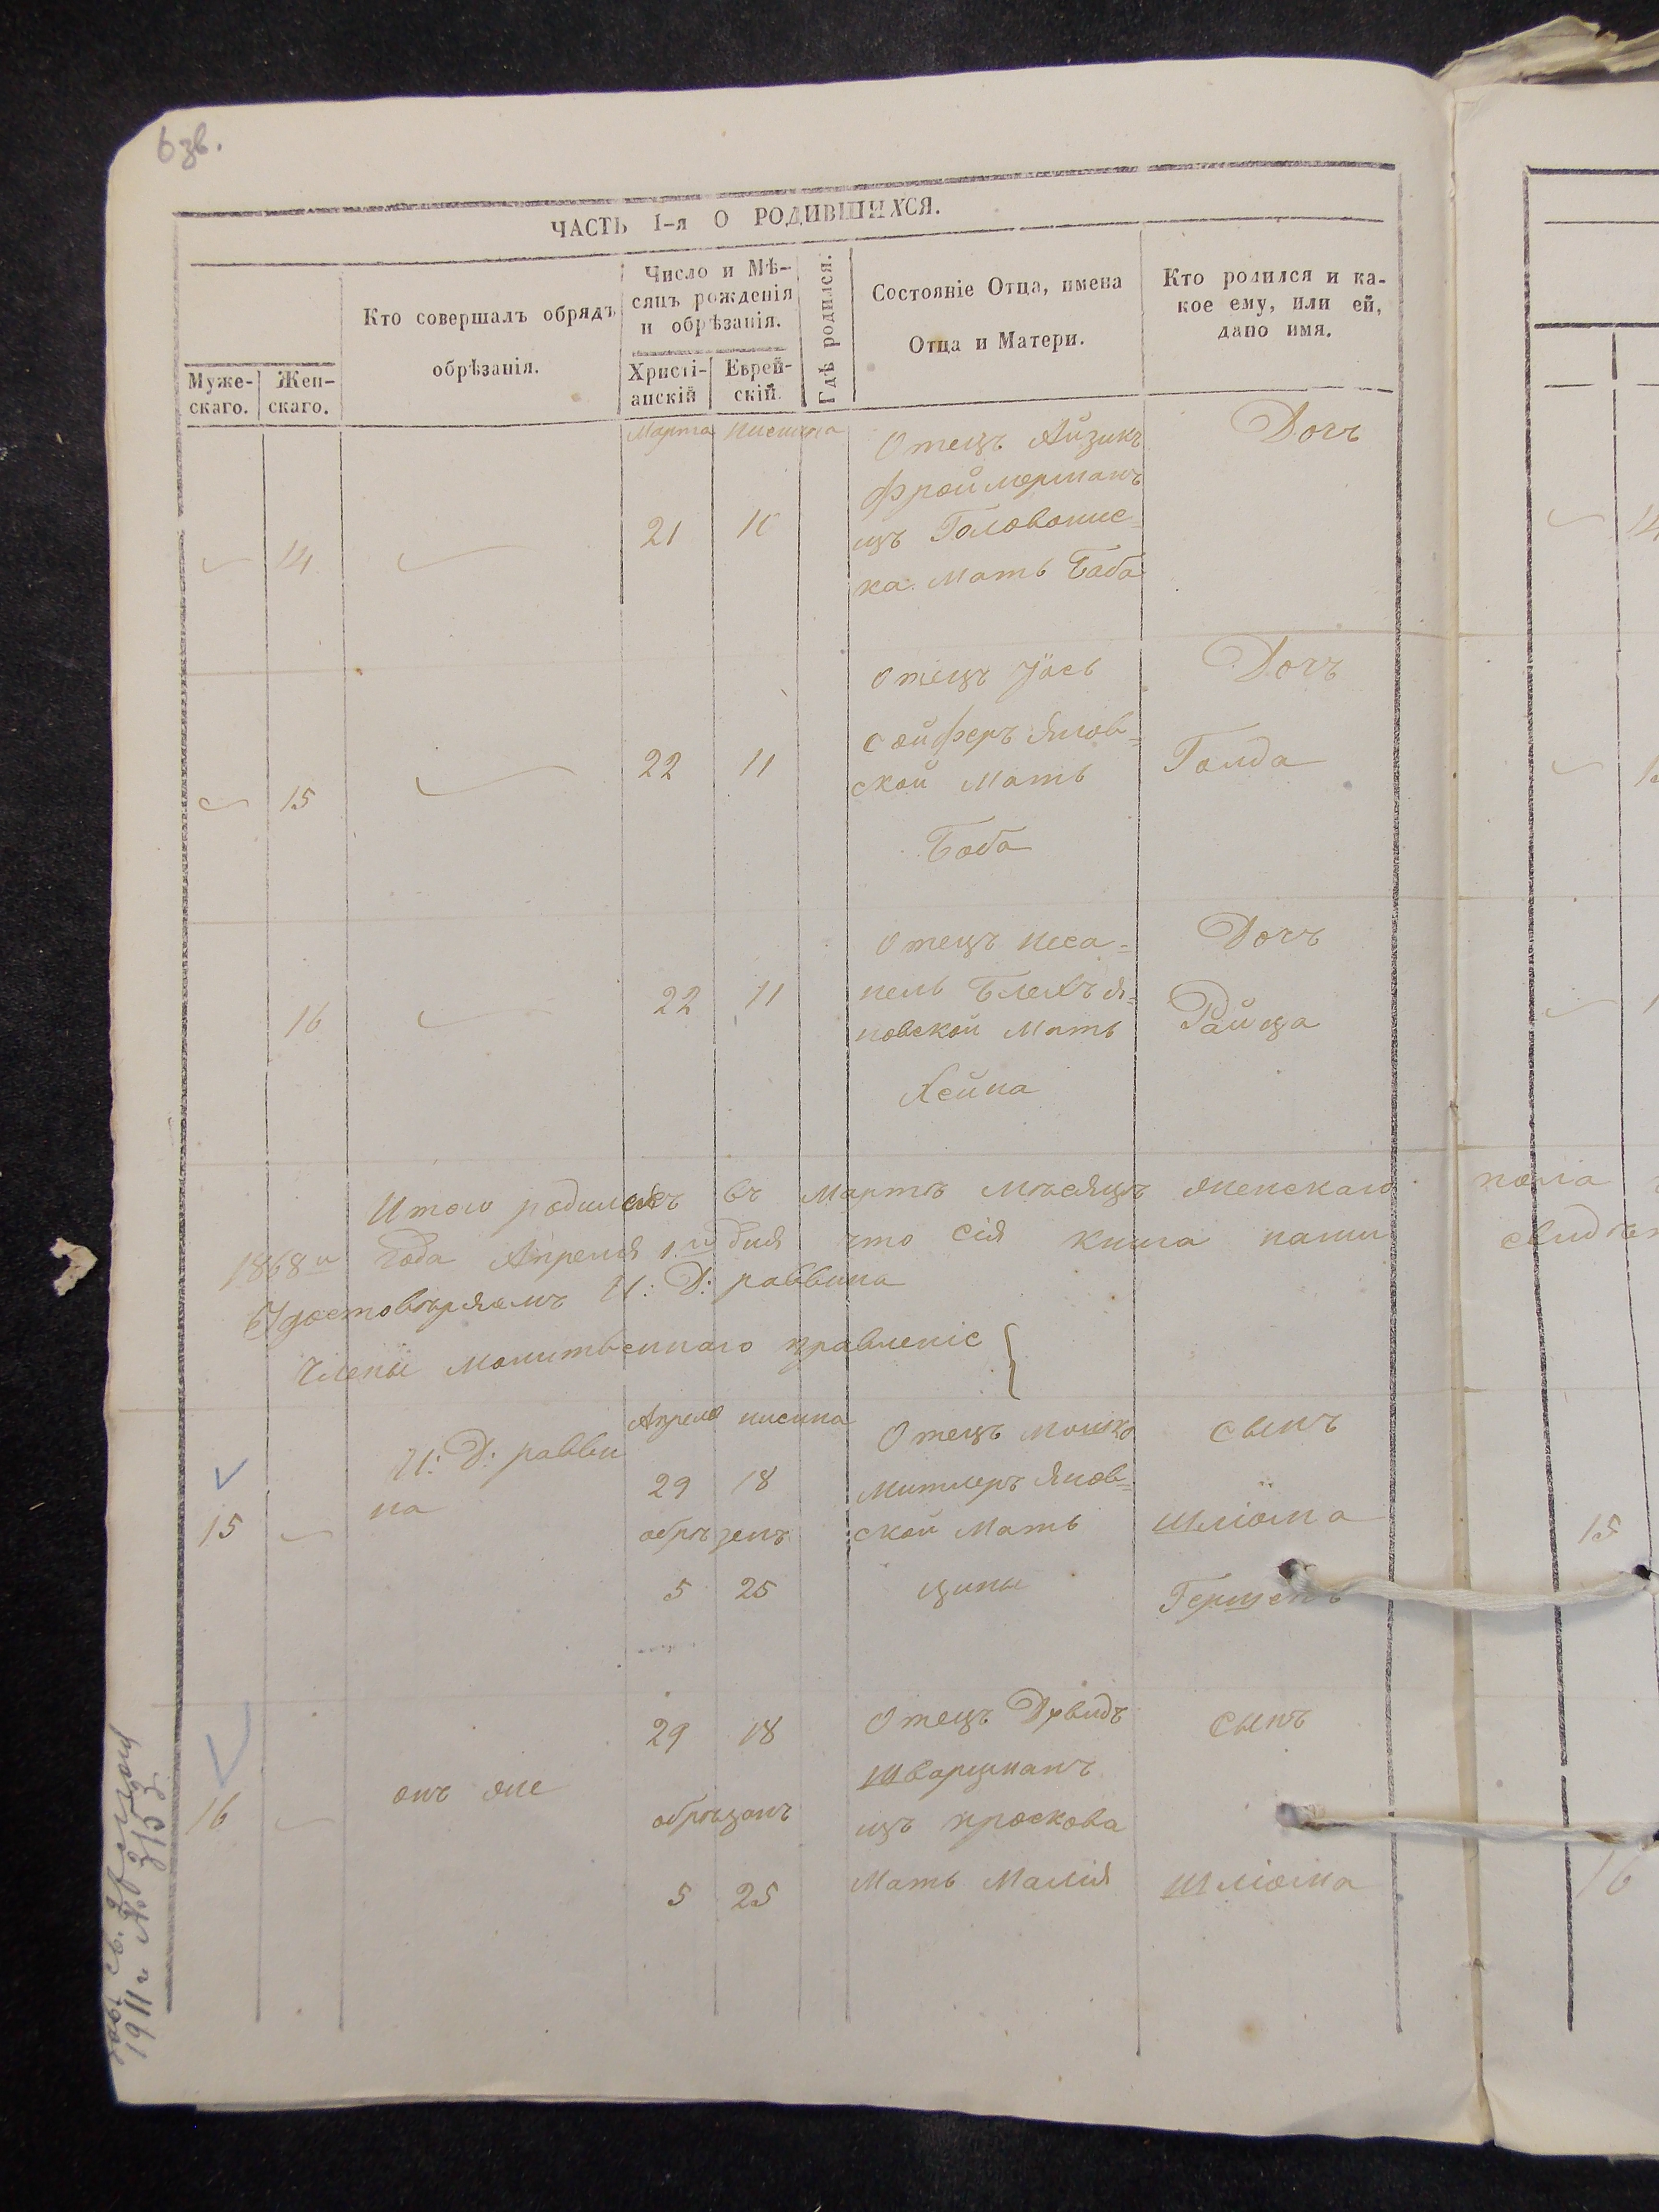 6 зв.
ЧАСТЬ I-я О РОДИВШИХСЯ.
Муже-
скаго.
Жен-
скаго.
Кто совершалъ обрядъ
обрѣзанія.
Число и Мѣ-
сяцъ рожденія
и обрѣзанія.
Христі-
анскій
Еврей-
скій.
Гдѣ родился.
Состояніе Отца, имена
Отца и Матери.
Кто родился и ка-
кое ему, или ей,
дано имя.
Марта Нисина
14
21
10
Отецъ Айзикъ
Фроймерманъ
изъ Головонис-
ка. Мать Баба
Дочъ
15
22
11
Отецъ Іось
Сойферъ Янов=
ской Мать
Боба
Дочъ
Голда
16
22
11
Отецъ Неса=
нель Блехъ Я=
новской Мать
Хейна
Дочъ
Райца
Итого родилось въ Мартѣ мѣсяцѣ женскаго пола
1868 го года Апреля 1. го дня что сія книга нами
Удостовѣряемъ И: Д: раввина
Члены молитвеннаго правленіе
Апреля нисина
15
И: Д: равви
на
29
18
обрѣзенъ
5
25
Отецъ Мошко
Митлеръ Янов=
ской Мать
Ципы
Сынъ
Шліома
Гершенъ
15
16
онъ же
29
18
обрѣзанъ
5
25
Отецъ Давидъ
Шварцманъ
изъ проскова
Мать Малія
Сынъ
Шліома
16
1911 г. № 3153